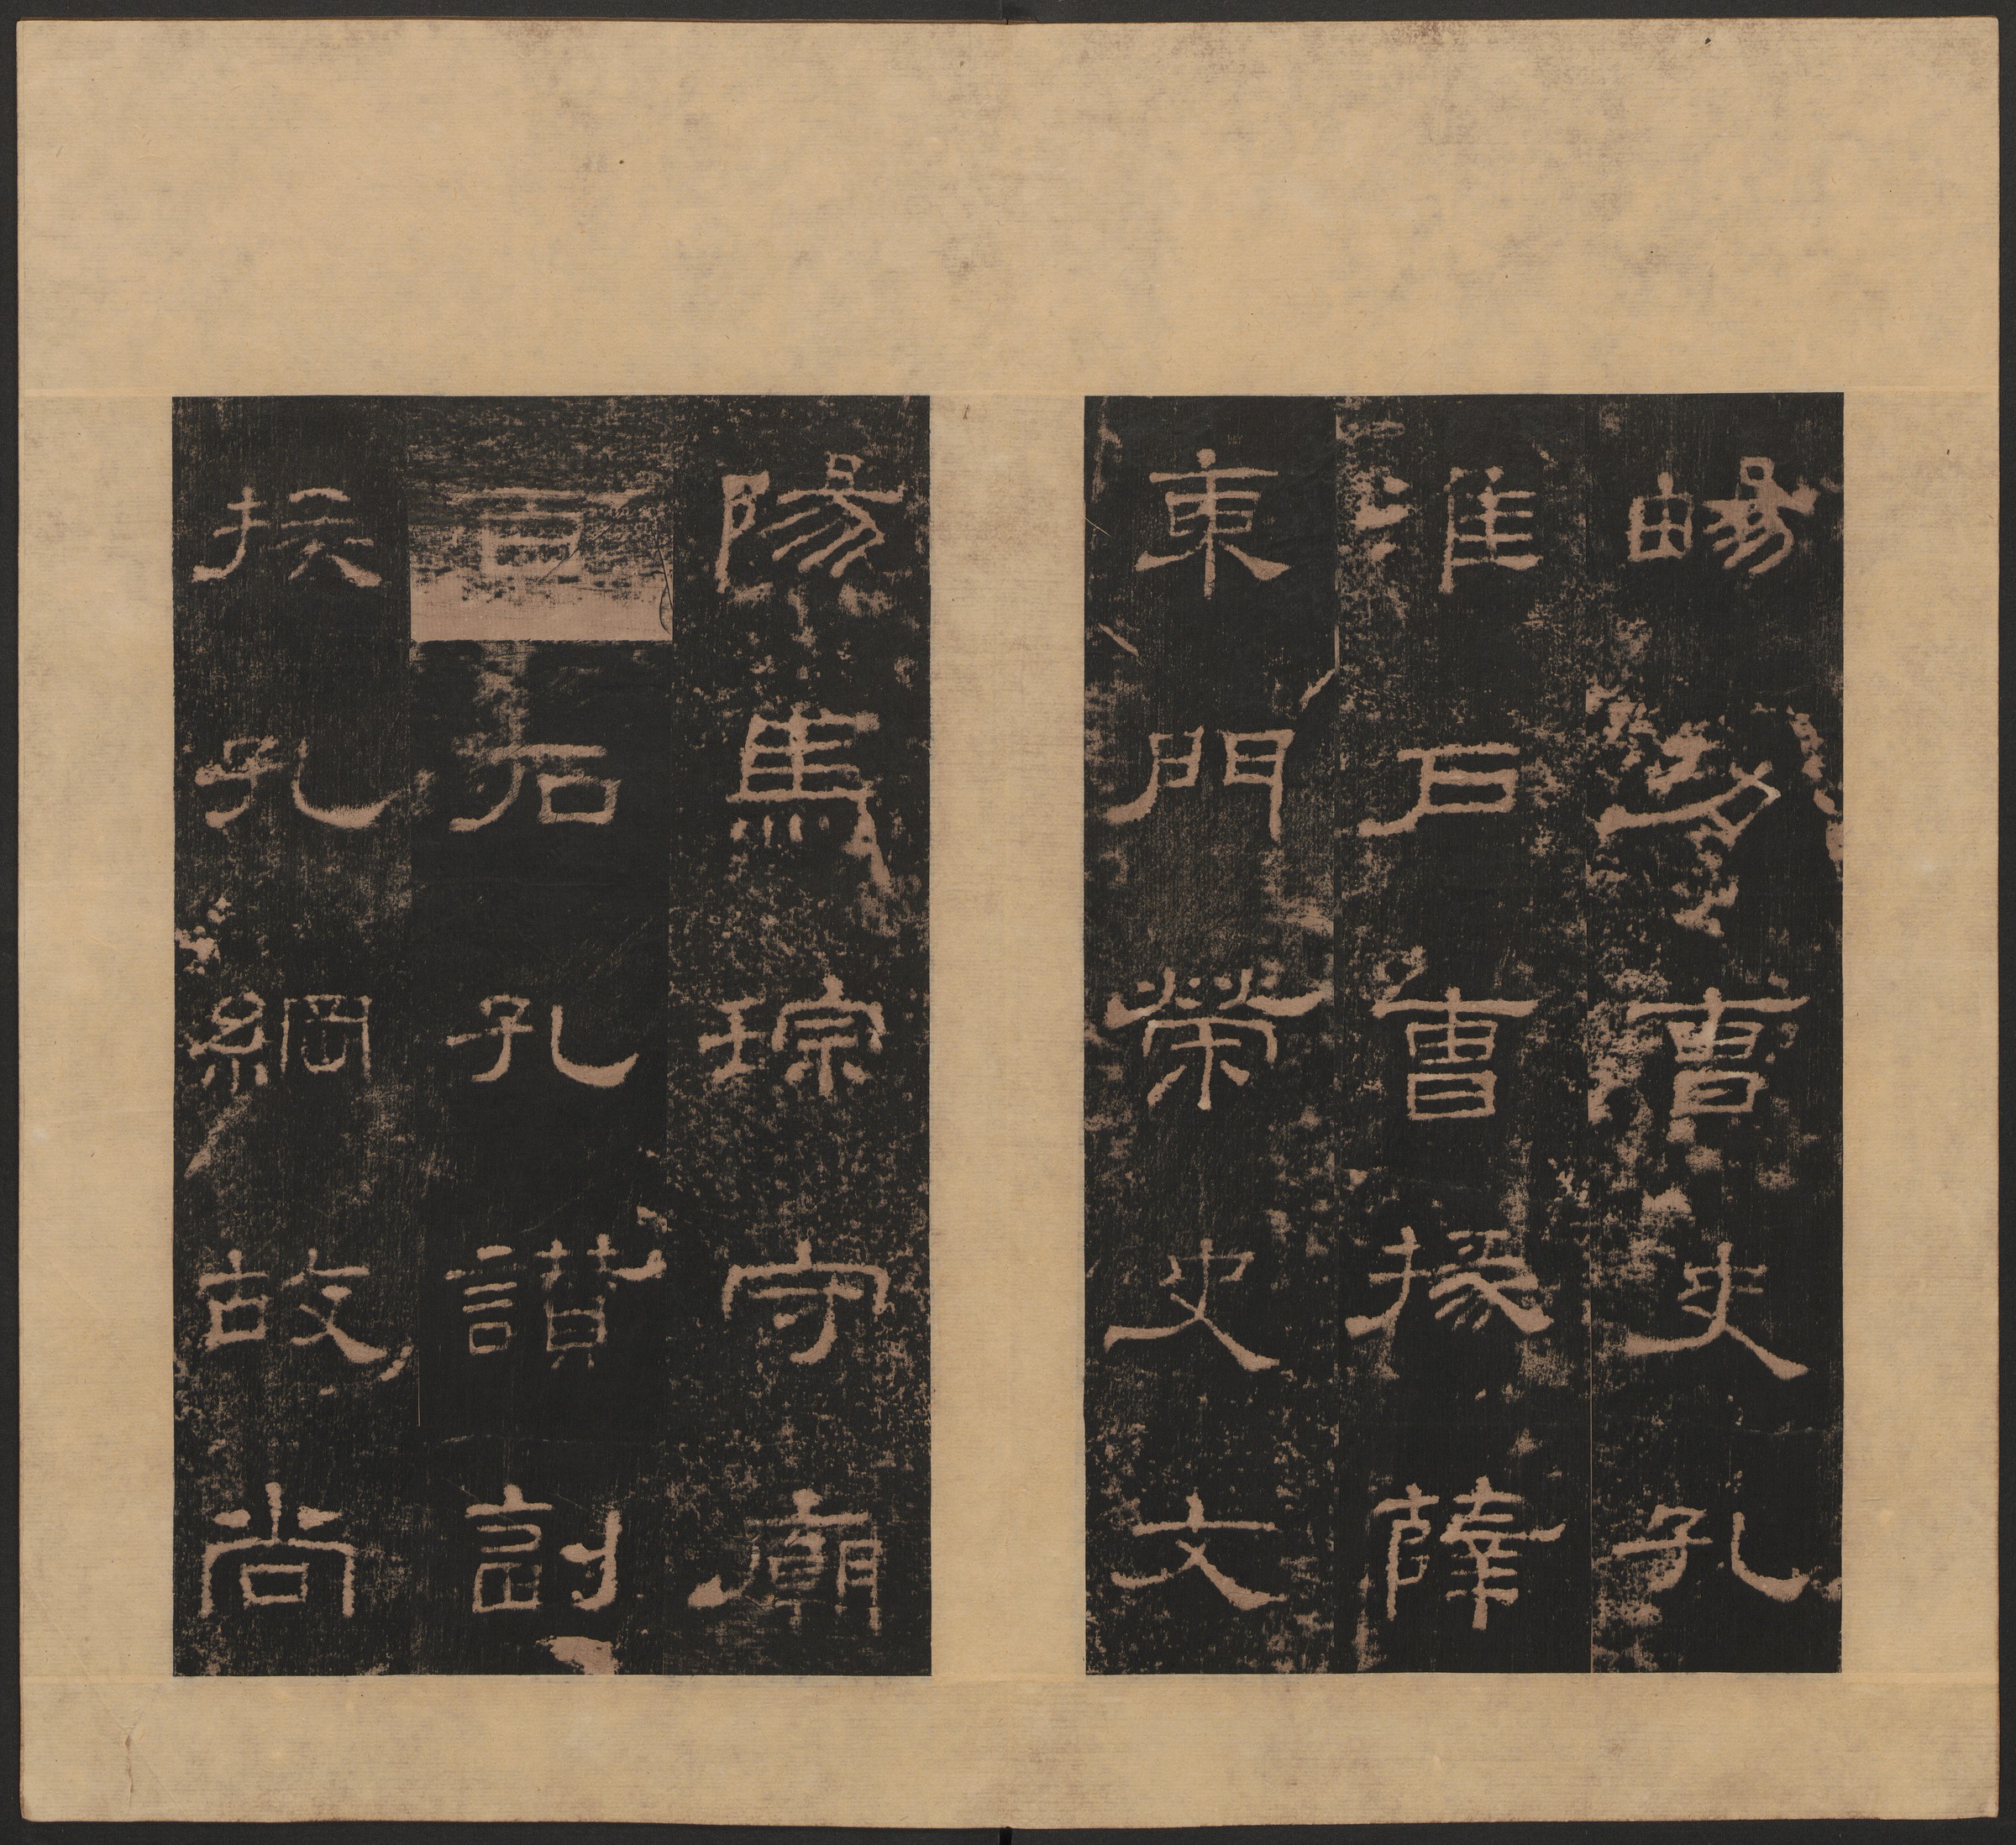 畼功曹史孔
淮戶曹掾薛
東門榮史文
陽馬琮守廟
百石孔讃副
掾孔綱故尚